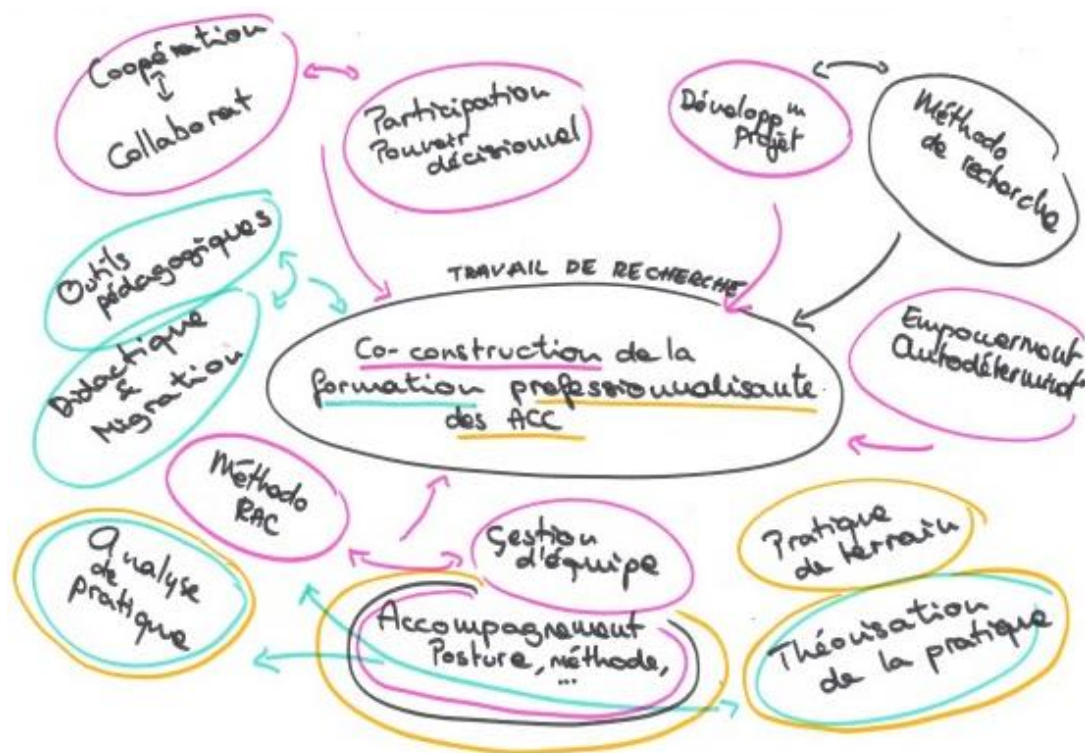 Coopération
Collaborat
Participation
Pouvoir
décisionnel
Développ^m
Projet
Méthodo
de recherche
Outils
pédagogiques
Didactique
&
Migration
TRAVAIL DE RECHERCHE
Co-construction de la
formation professionnalisante
des ACC
Empowerment
Autodéterminat°
Méthodo
RAC
Analyse
de
pratique
Gestion
d'équipe
Accompagnement
Posture, méthode,
...
Pratique
de terrain
Théorisation
de la pratique